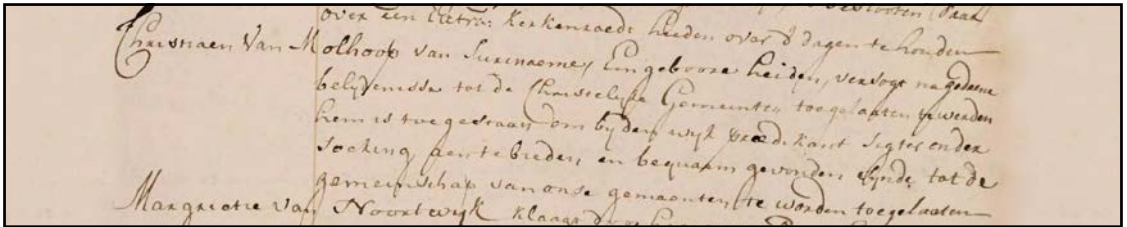 besloten
over een Extra: kerkenraedt heeden over 8 dagen te houden
Christiaen Van Molhoop van Surinaeme, Een geboore heiden, versogt na gedaene
belydenisse tot de Christelyke Gemeinte toegelaaten te werden
hem is toegestaan om by den wyk predikant sig ter onder
soeking aen te bieden en bequaam gevonden synde, tot de
gemeinschap van onse gemaente te worden toegelaeten
Margrietie van Noortwyk klaagt